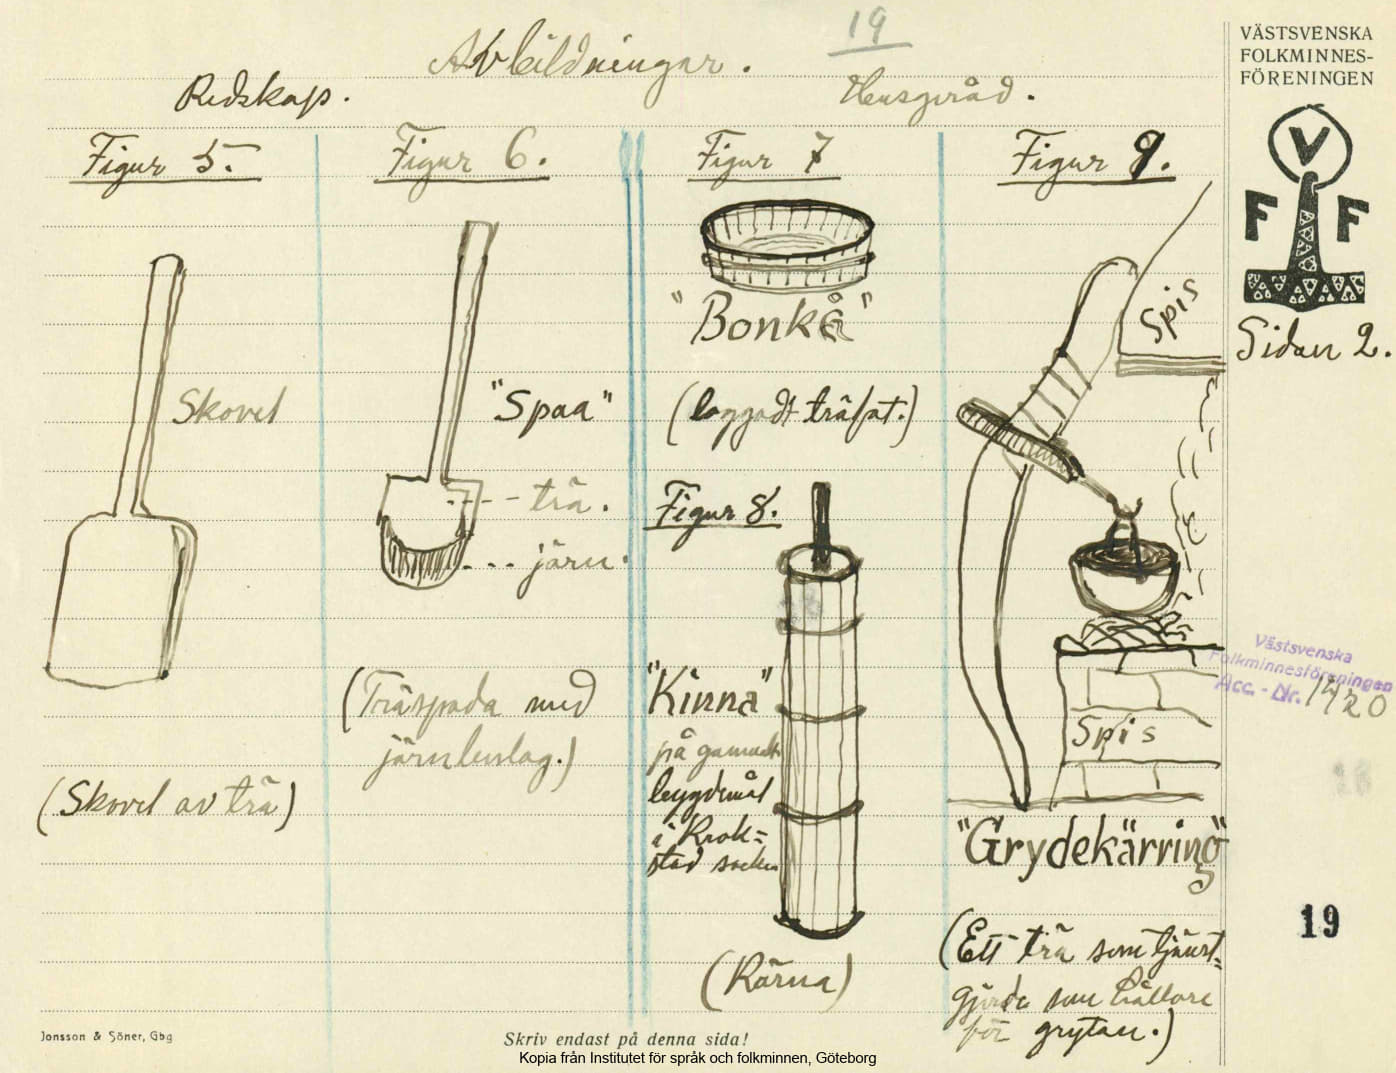 19
Avbildningar.
Redskap.
Husgeråd.
Figur 5.
Skovel
(Skovel av trä)
Figur 6.
"Spaa"
trä.
järn.
(Träspada med
järnbeslag.)
Figur 7
"Bonkå"
(laggadt träfat.)
Figur 8.
"Kinna"
på gamalt
bygdemål
i Krok=
stad socken
(Kärna)
Figur 9.
Spis
Spis
"Grydekärring"
(Ett trä som tjänst=
gjorde som hållare
för grytan.)
VÄSTSVENSKA
FOLKMINNES-
FÖRENINGEN
V
F F
Sidan 2.
Västsvenska
Folkminnesföreningen
Acc. - Nr. 1420
19
Jonsson & Söner, Gbg
Skriv endast på denna sida!
Kopia från Institutet för språk och folkminnen, Göteborg